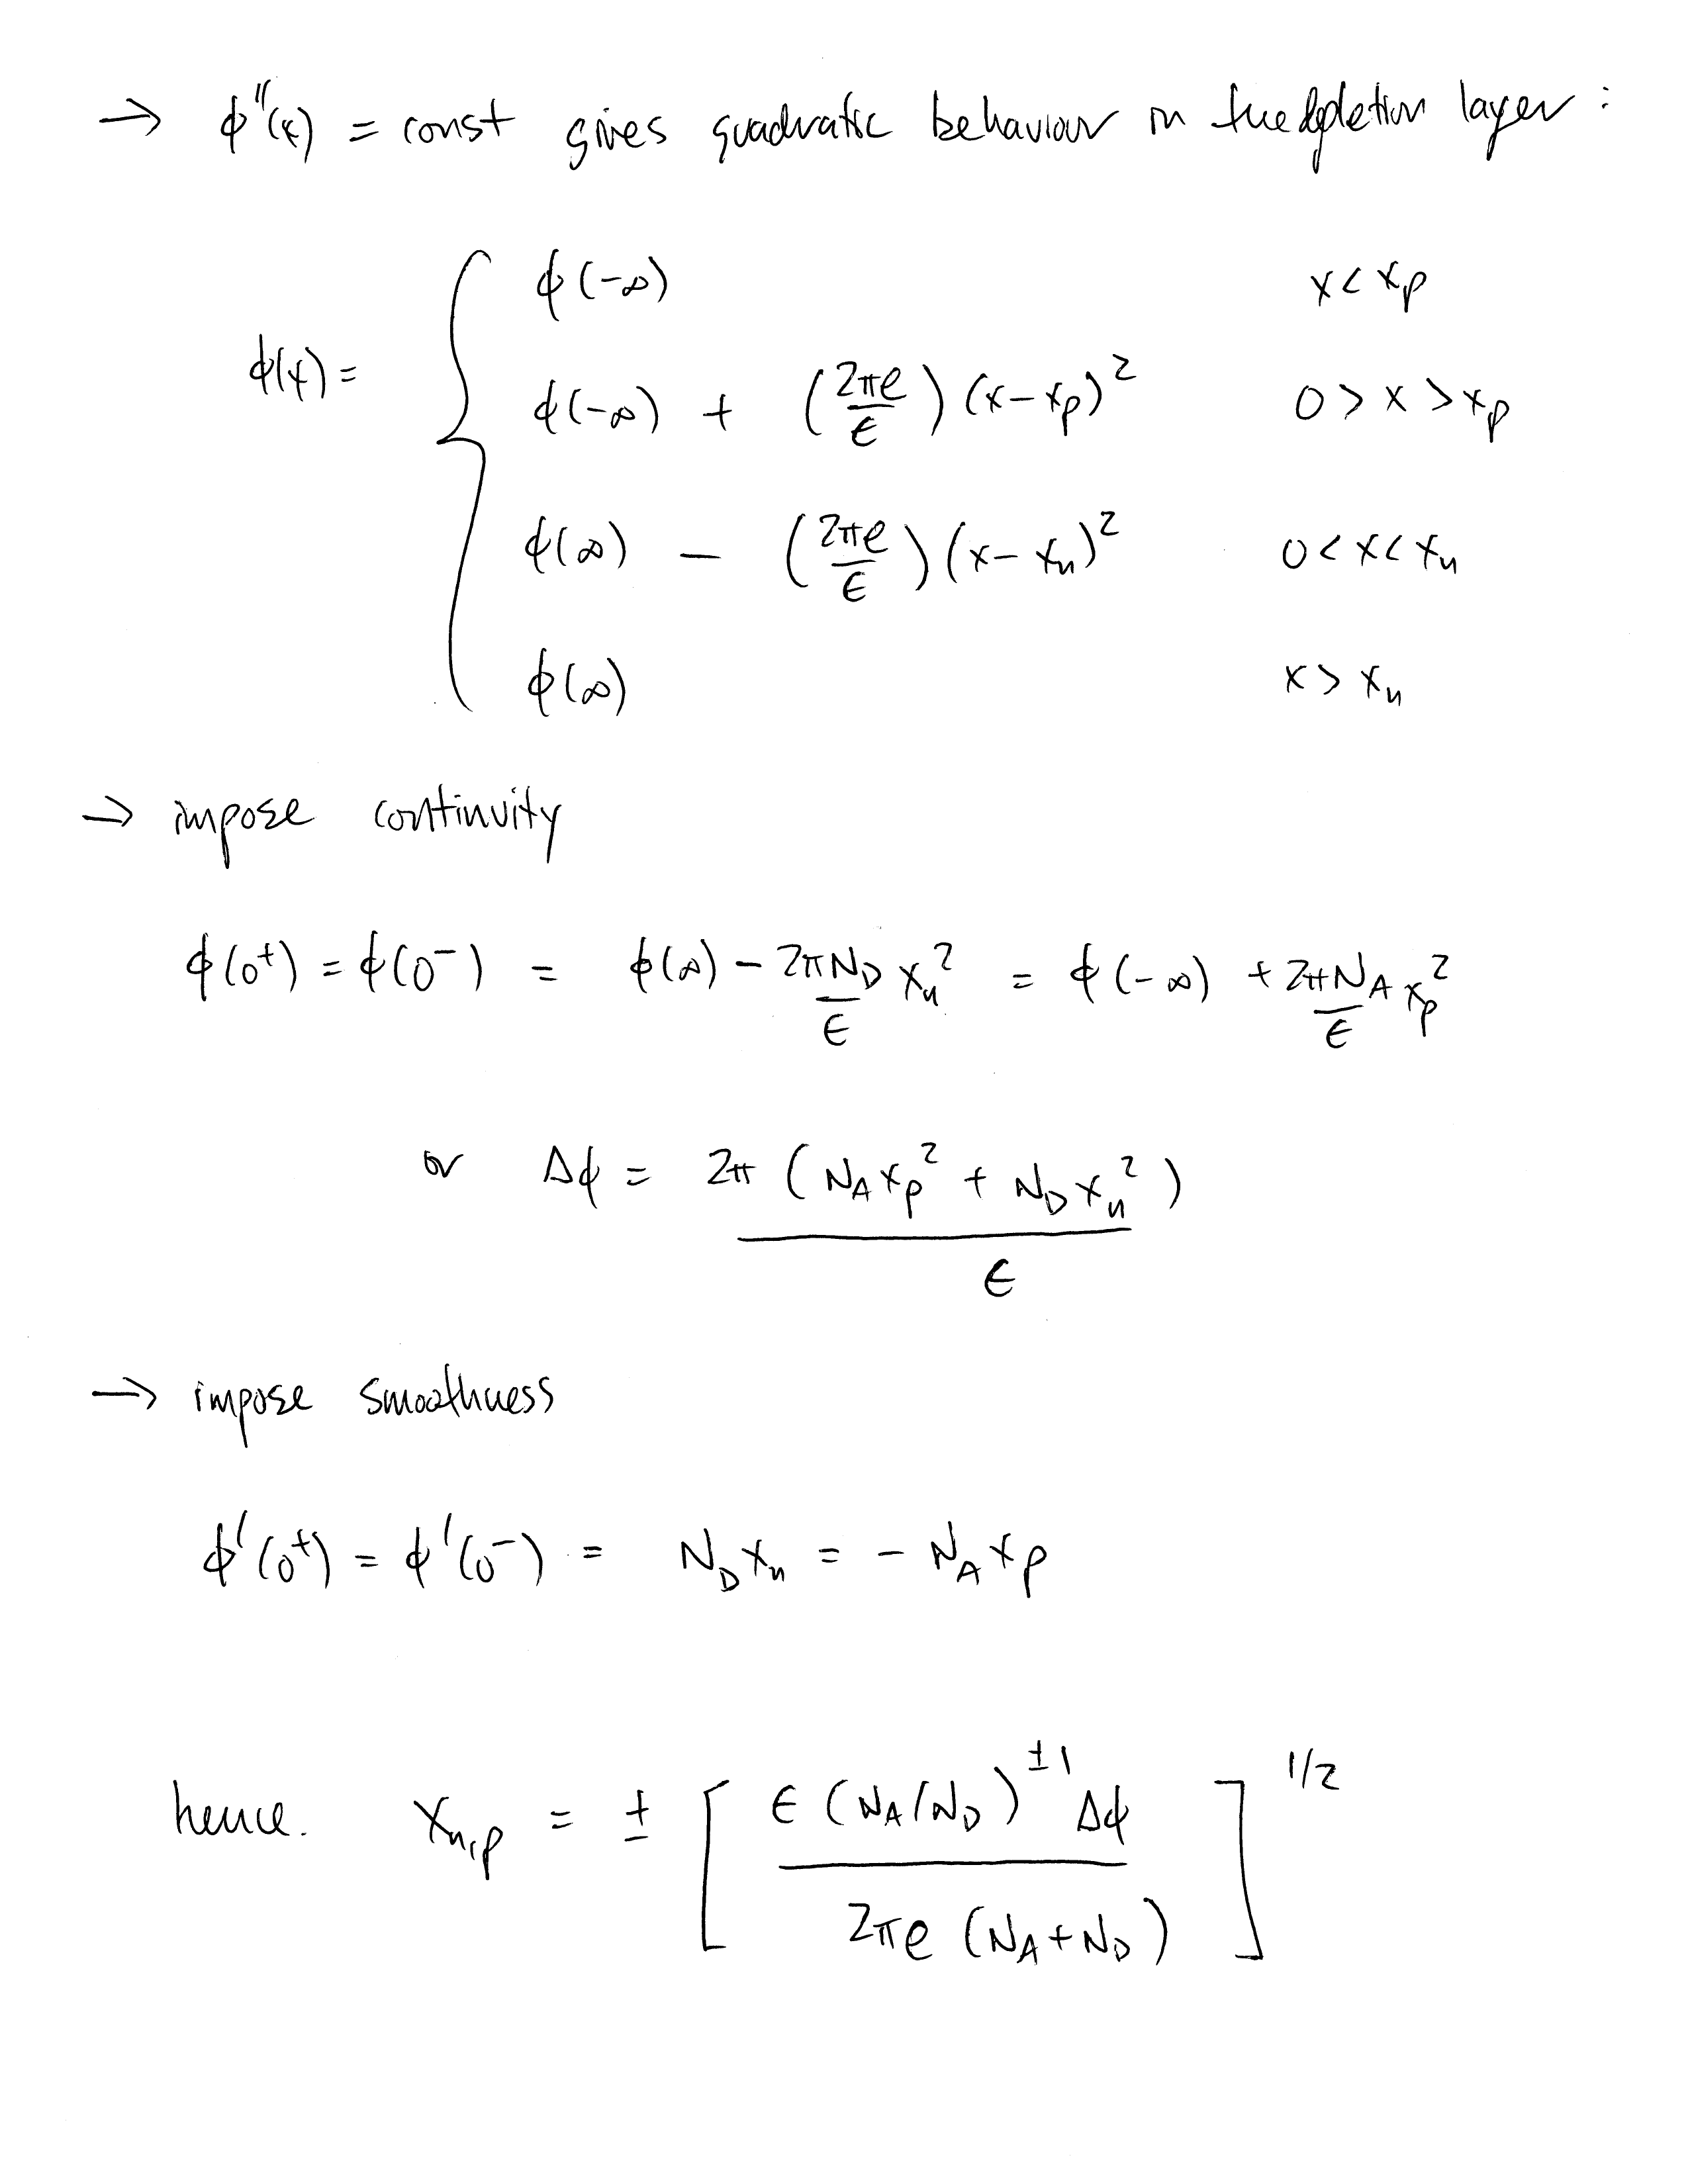 → ϕ''(x) = const gives quadratic behaviour in the depletion layer :
ϕ(x) = { ϕ(-∞) x < xₚ
ϕ(-∞) + (2πe/ϵ) (x - xₚ)² 0 > x > xₚ
ϕ(∞) - (2πe/ϵ) (x - xₙ)² 0 < x < xₙ
ϕ(∞) x > xₙ
→ impose continuity
ϕ(0⁺) = ϕ(0⁻) = ϕ(∞) - 2πN_D/ϵ xₙ² = ϕ(-∞) + 2πN_A/ϵ xₚ²
or Δϕ = 2π (N_A xₚ² + N_D xₙ²) / ϵ
→ impose smoothness
ϕ'(0⁺) = ϕ'(0⁻) = N_D xₙ = - N_A xₚ
hence. x_{n,p} = ± [ ϵ (N_A/N_D)^{±1} Δϕ / 2πe (N_A + N_D) ]^{1/2}